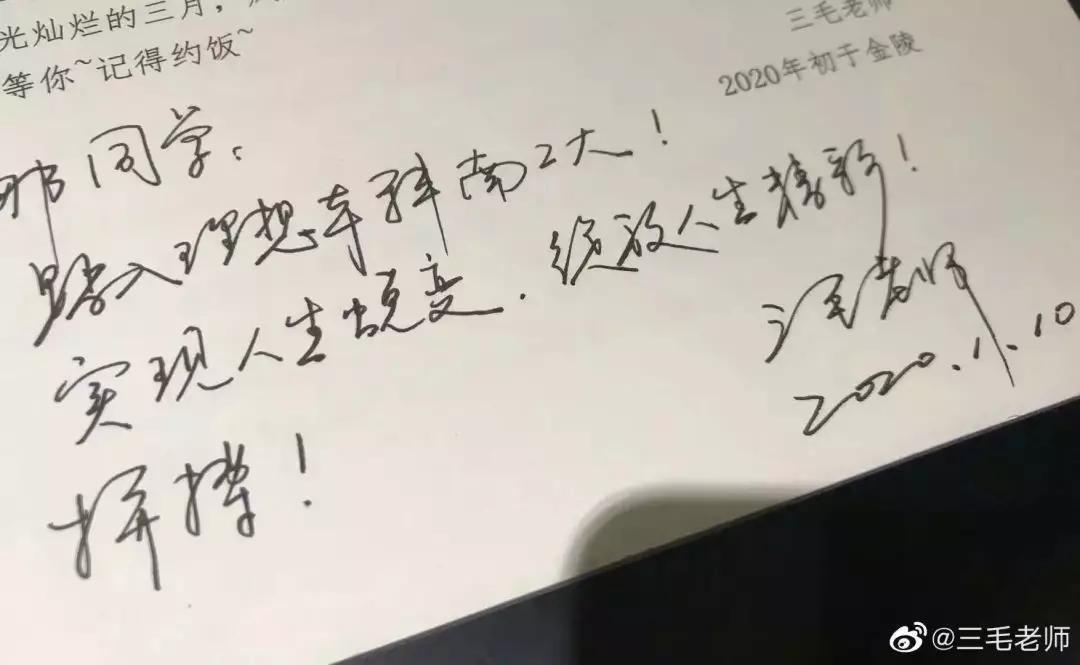 光灿烂的三月,
等你~记得约饭~
三毛老师
2020年初于金陵
那同学:
踏入理想车辆南工大!
实现人生蜕变.绽放人生精彩!
拼搏!
三毛老师
2020.1.10
@三毛老师